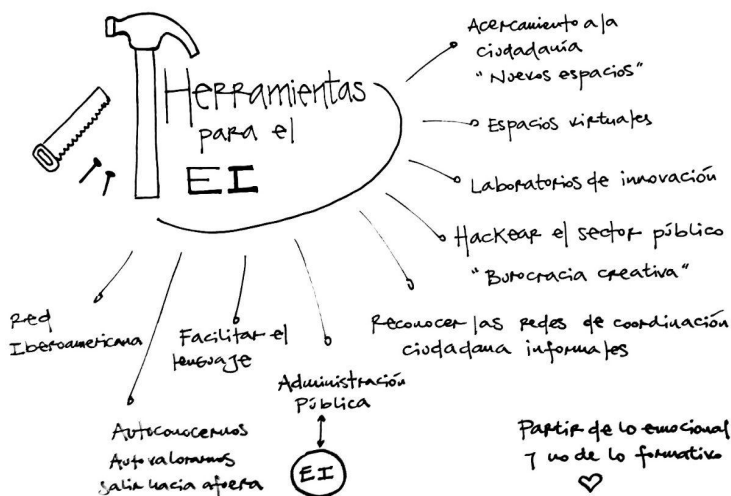 Herramientas
para el
EI
Acercamiento a la
ciudadanía
"Nuevos espacios"
Espacios virtuales
Laboratorios de innovación
Hackear el sector público
"Burocracia creativa"
Reconocer las redes de coordinación
ciudadana informales
Administración
Pública
EI
Facilitar el
lenguaje
Autoconocernos
Autovalorarnos
salir hacia afuera
Red
Iberoamericana
Partir de lo emocional
y no de lo formativo